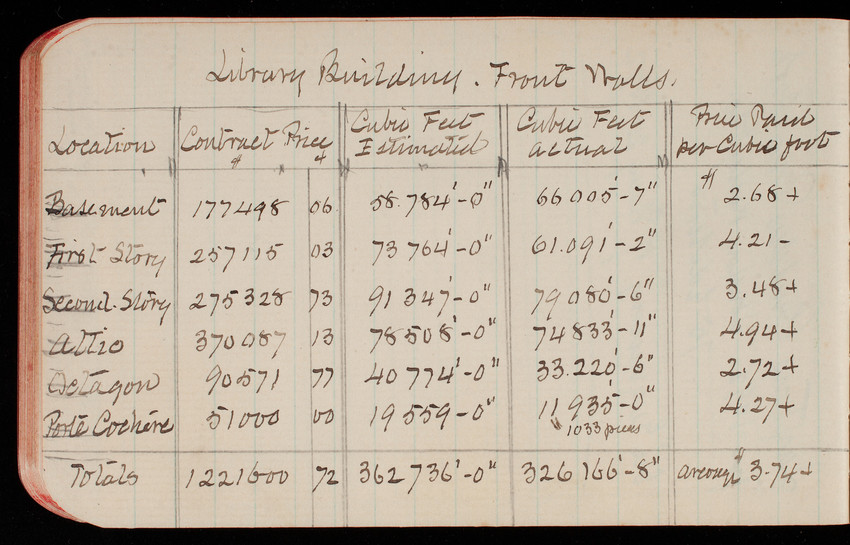 Library Building. Front Walls.
Location Contract Price Cubic Feet Estimated Cubic Feet actual Price Paid per Cubic foot
$ ¢
Basement 177498 06 58.784'-0" 66005'-7" $ 2.68+
First Story 257115 03 73764'-0" 61.091'-2" 4.21-
Second Story 275328 73 91347'-0" 79080'-6" 3.48+
Attic 370087 13 78508'-0" 74833'-11" 4.94+
Octagon 90571 77 40774'-0" 33.220'-6" 2.72+
Porte Cochère 51000 00 19559-0" 11935'-0" 4.27+
" 1033 pieces
Totals 1221600 72 362736'-0" 326166'-8" average $ 3.74+